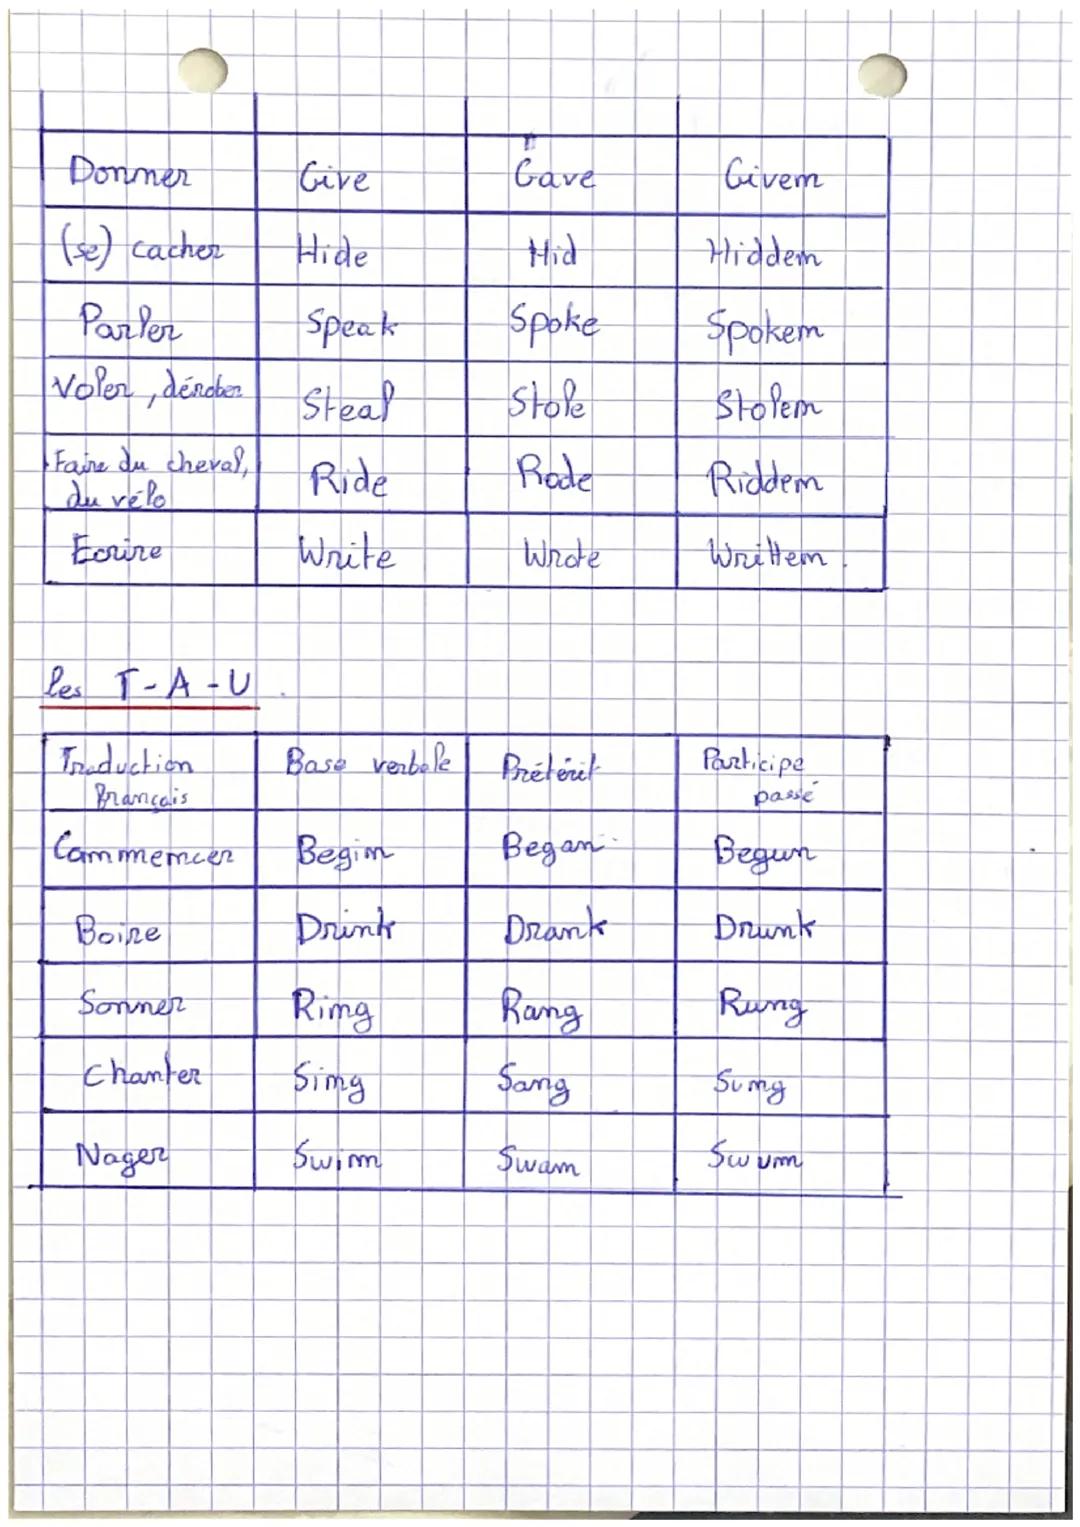 Donner Give Gave Given
(se) cacher Hide Hid Hidden
Parler Speak Spoke Spoken
Voler, dérober Steal Stole Stolen
Faire du cheval,
du vélo Ride Rode Ridden
Ecrire Write Wrote Written.
les I-A-U.
Traduction Base verbale Prétérit Participe
Français passé
Commencer Begin Began Begun
Boire Drink Drank Drunk
Sonner Ring Rang Rung
Chanter Sing Sang Sung
Nager Swim Swam Swum